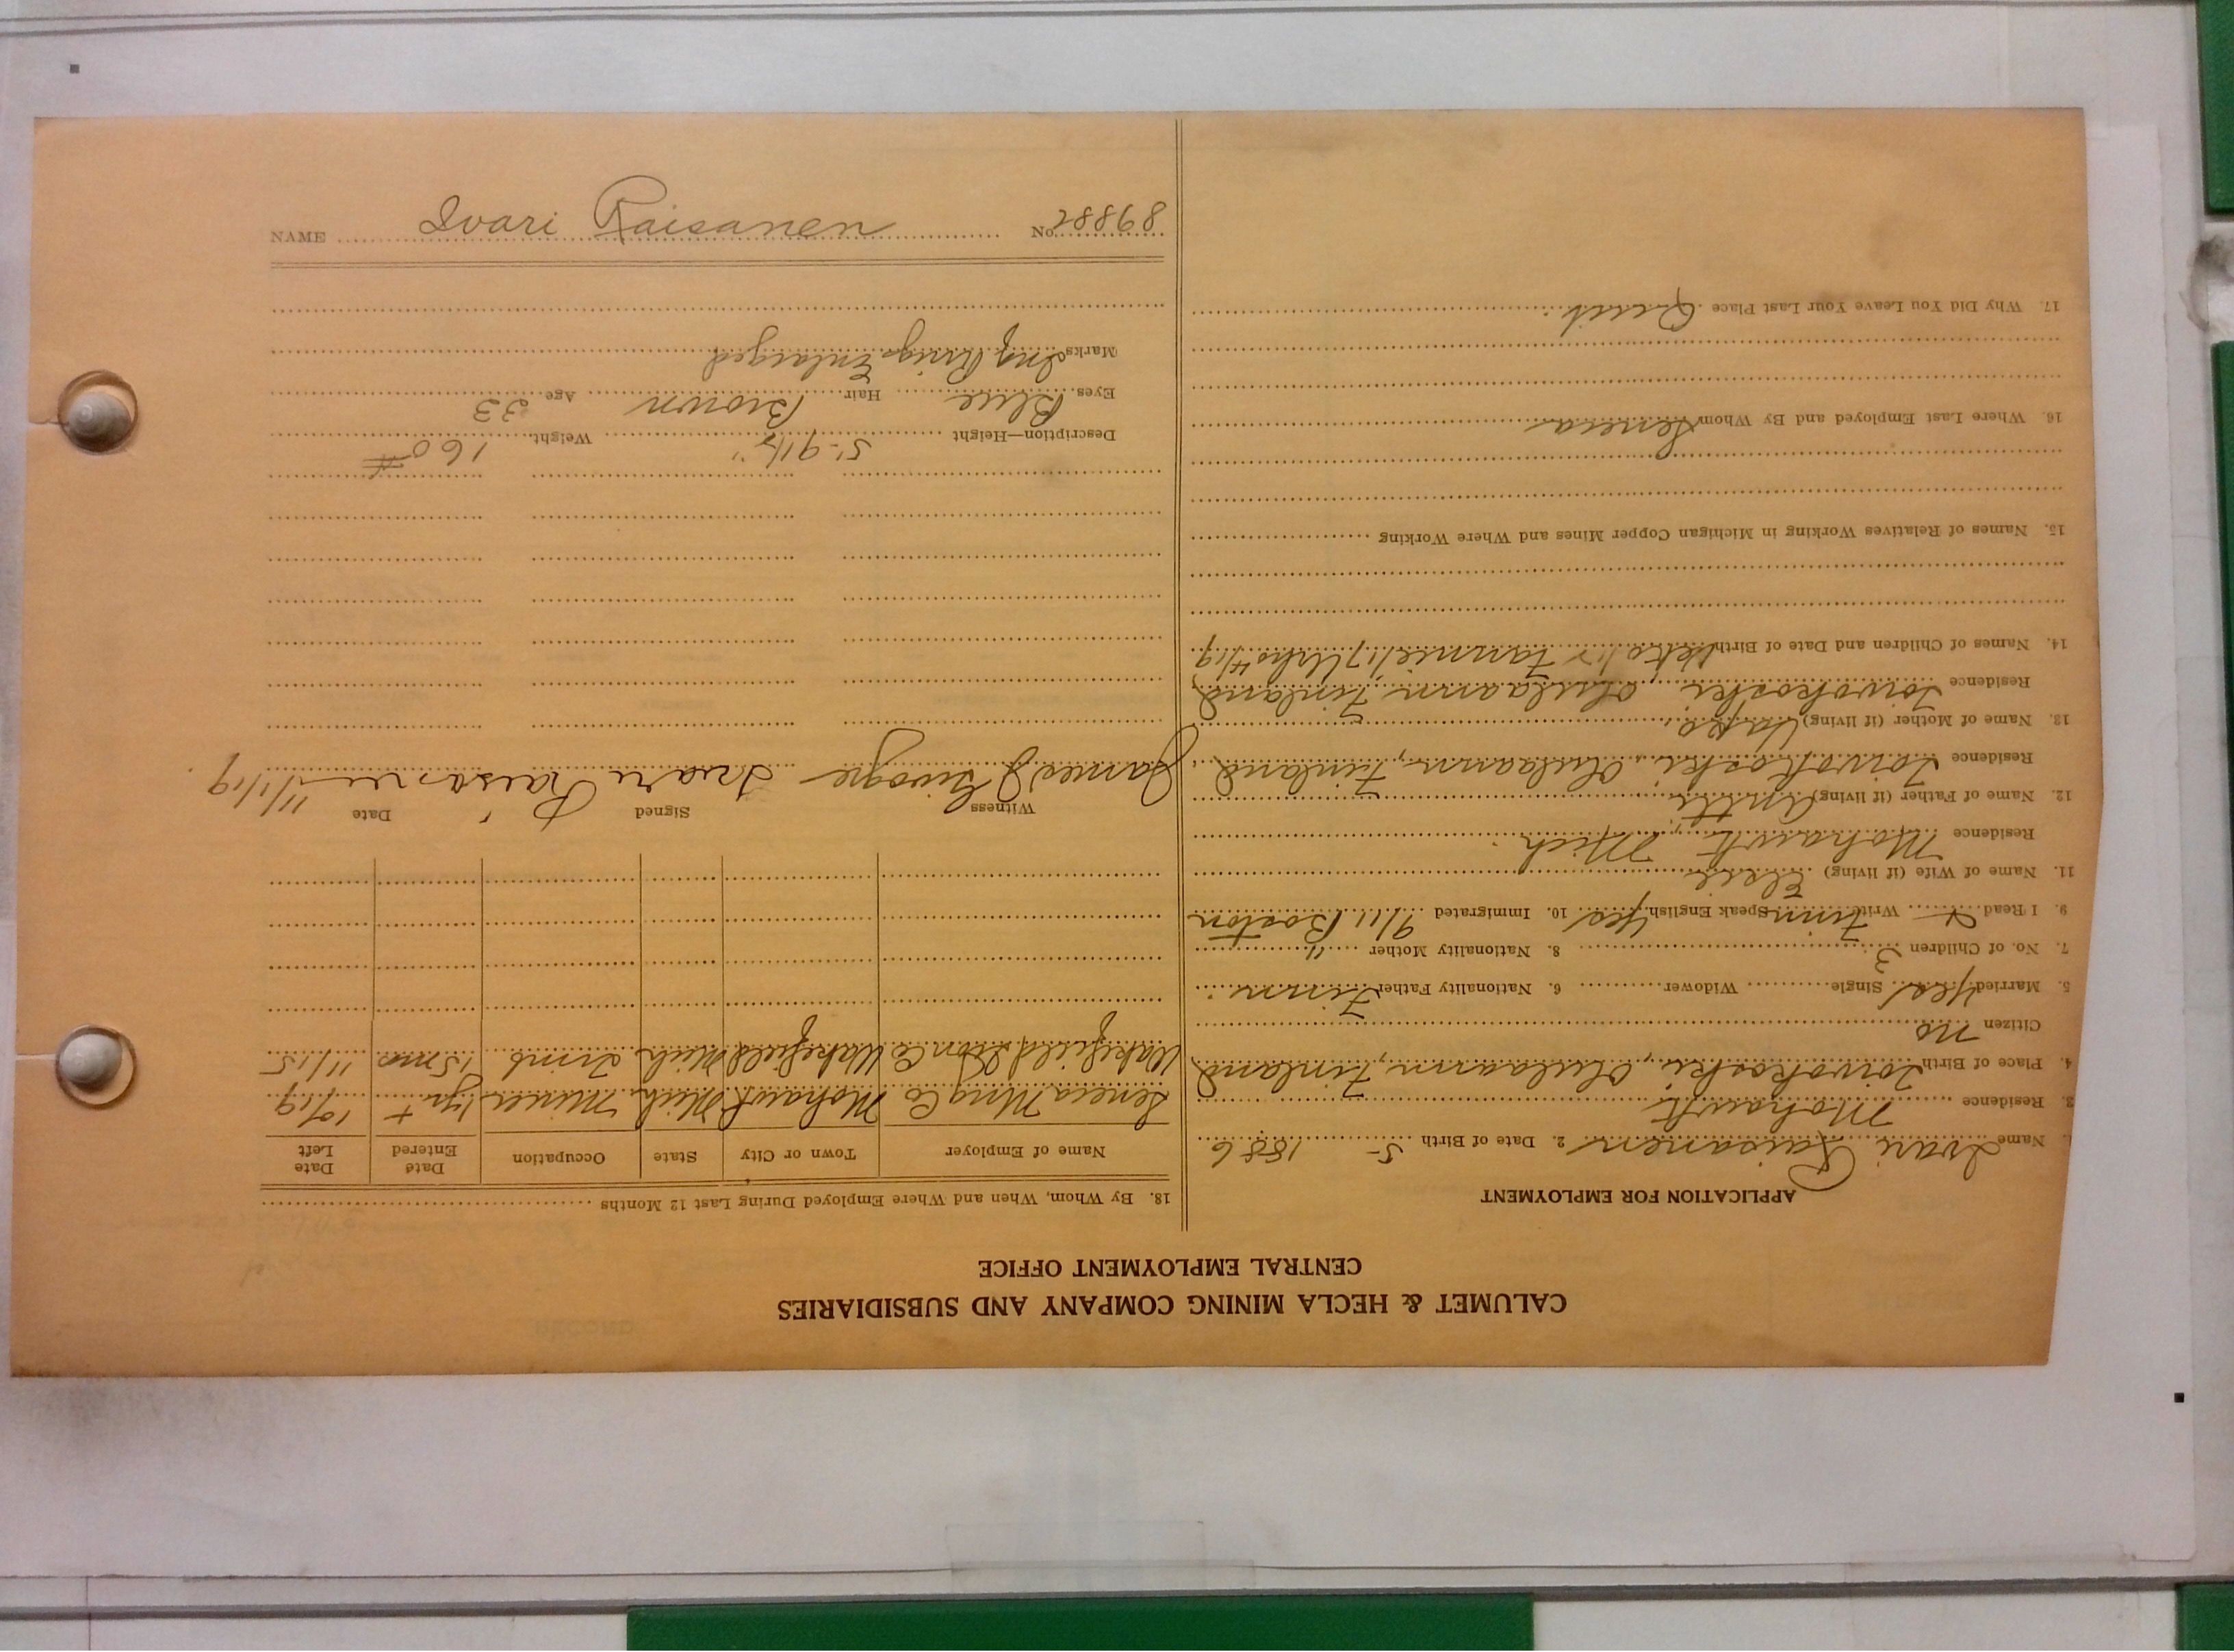 CALUMET & HECLA MINING COMPANY AND SUBSIDIARIES
CENTRAL EMPLOYMENT OFFICE
APPLICATION FOR EMPLOYMENT
1. Name Ivari Raisanen 2. Date of Birth 5- 1886
3. Residence Mohawk
4. Place of Birth Toivokoski, Oulaann, Finland
Citizen no
5. Married Yes Single Widower 6. Nationality Father Finn
7. No. of Children 3 8. Nationality Mother "
9. I Read Write Finn Speak English Yes 10. Immigrated 9/11 Boston
11. Name of Wife (if living)
Residence Mohawk Mich.
12. Name of Father (if living) Antti
Residence Toivokoski, Oulaann, Finland
13. Name of Mother (if living)
Residence Toivokoski, Oulaann Finland
14. Names of Children and Date of Birth Fannie/17 Urho 4/19
15. Names of Relatives Working in Michigan Copper Mines and Where Working
16. Where Last Employed and By Whom Seneca
17. Why Did You Leave Your Last Place Quit
18. By Whom, When and Where Employed During Last 12 Months
Name of Employer Town or City State Occupation Date Entered Date Left
Seneca Mng Co Mohawk Mich. Miner 1 yr + 10/19
Wakefield Iron Co Wakefield Mich Trimb 15 mo 11/15
Witness Signed Date
James J Ivari Raisanen 11/1/19
Description—Height 5-9 1/2" Weight 160 #
Eyes Blue Hair Brown Age 33
Marks Ing Rings Enlarged
NAME Ivari Raisanen No. 28898